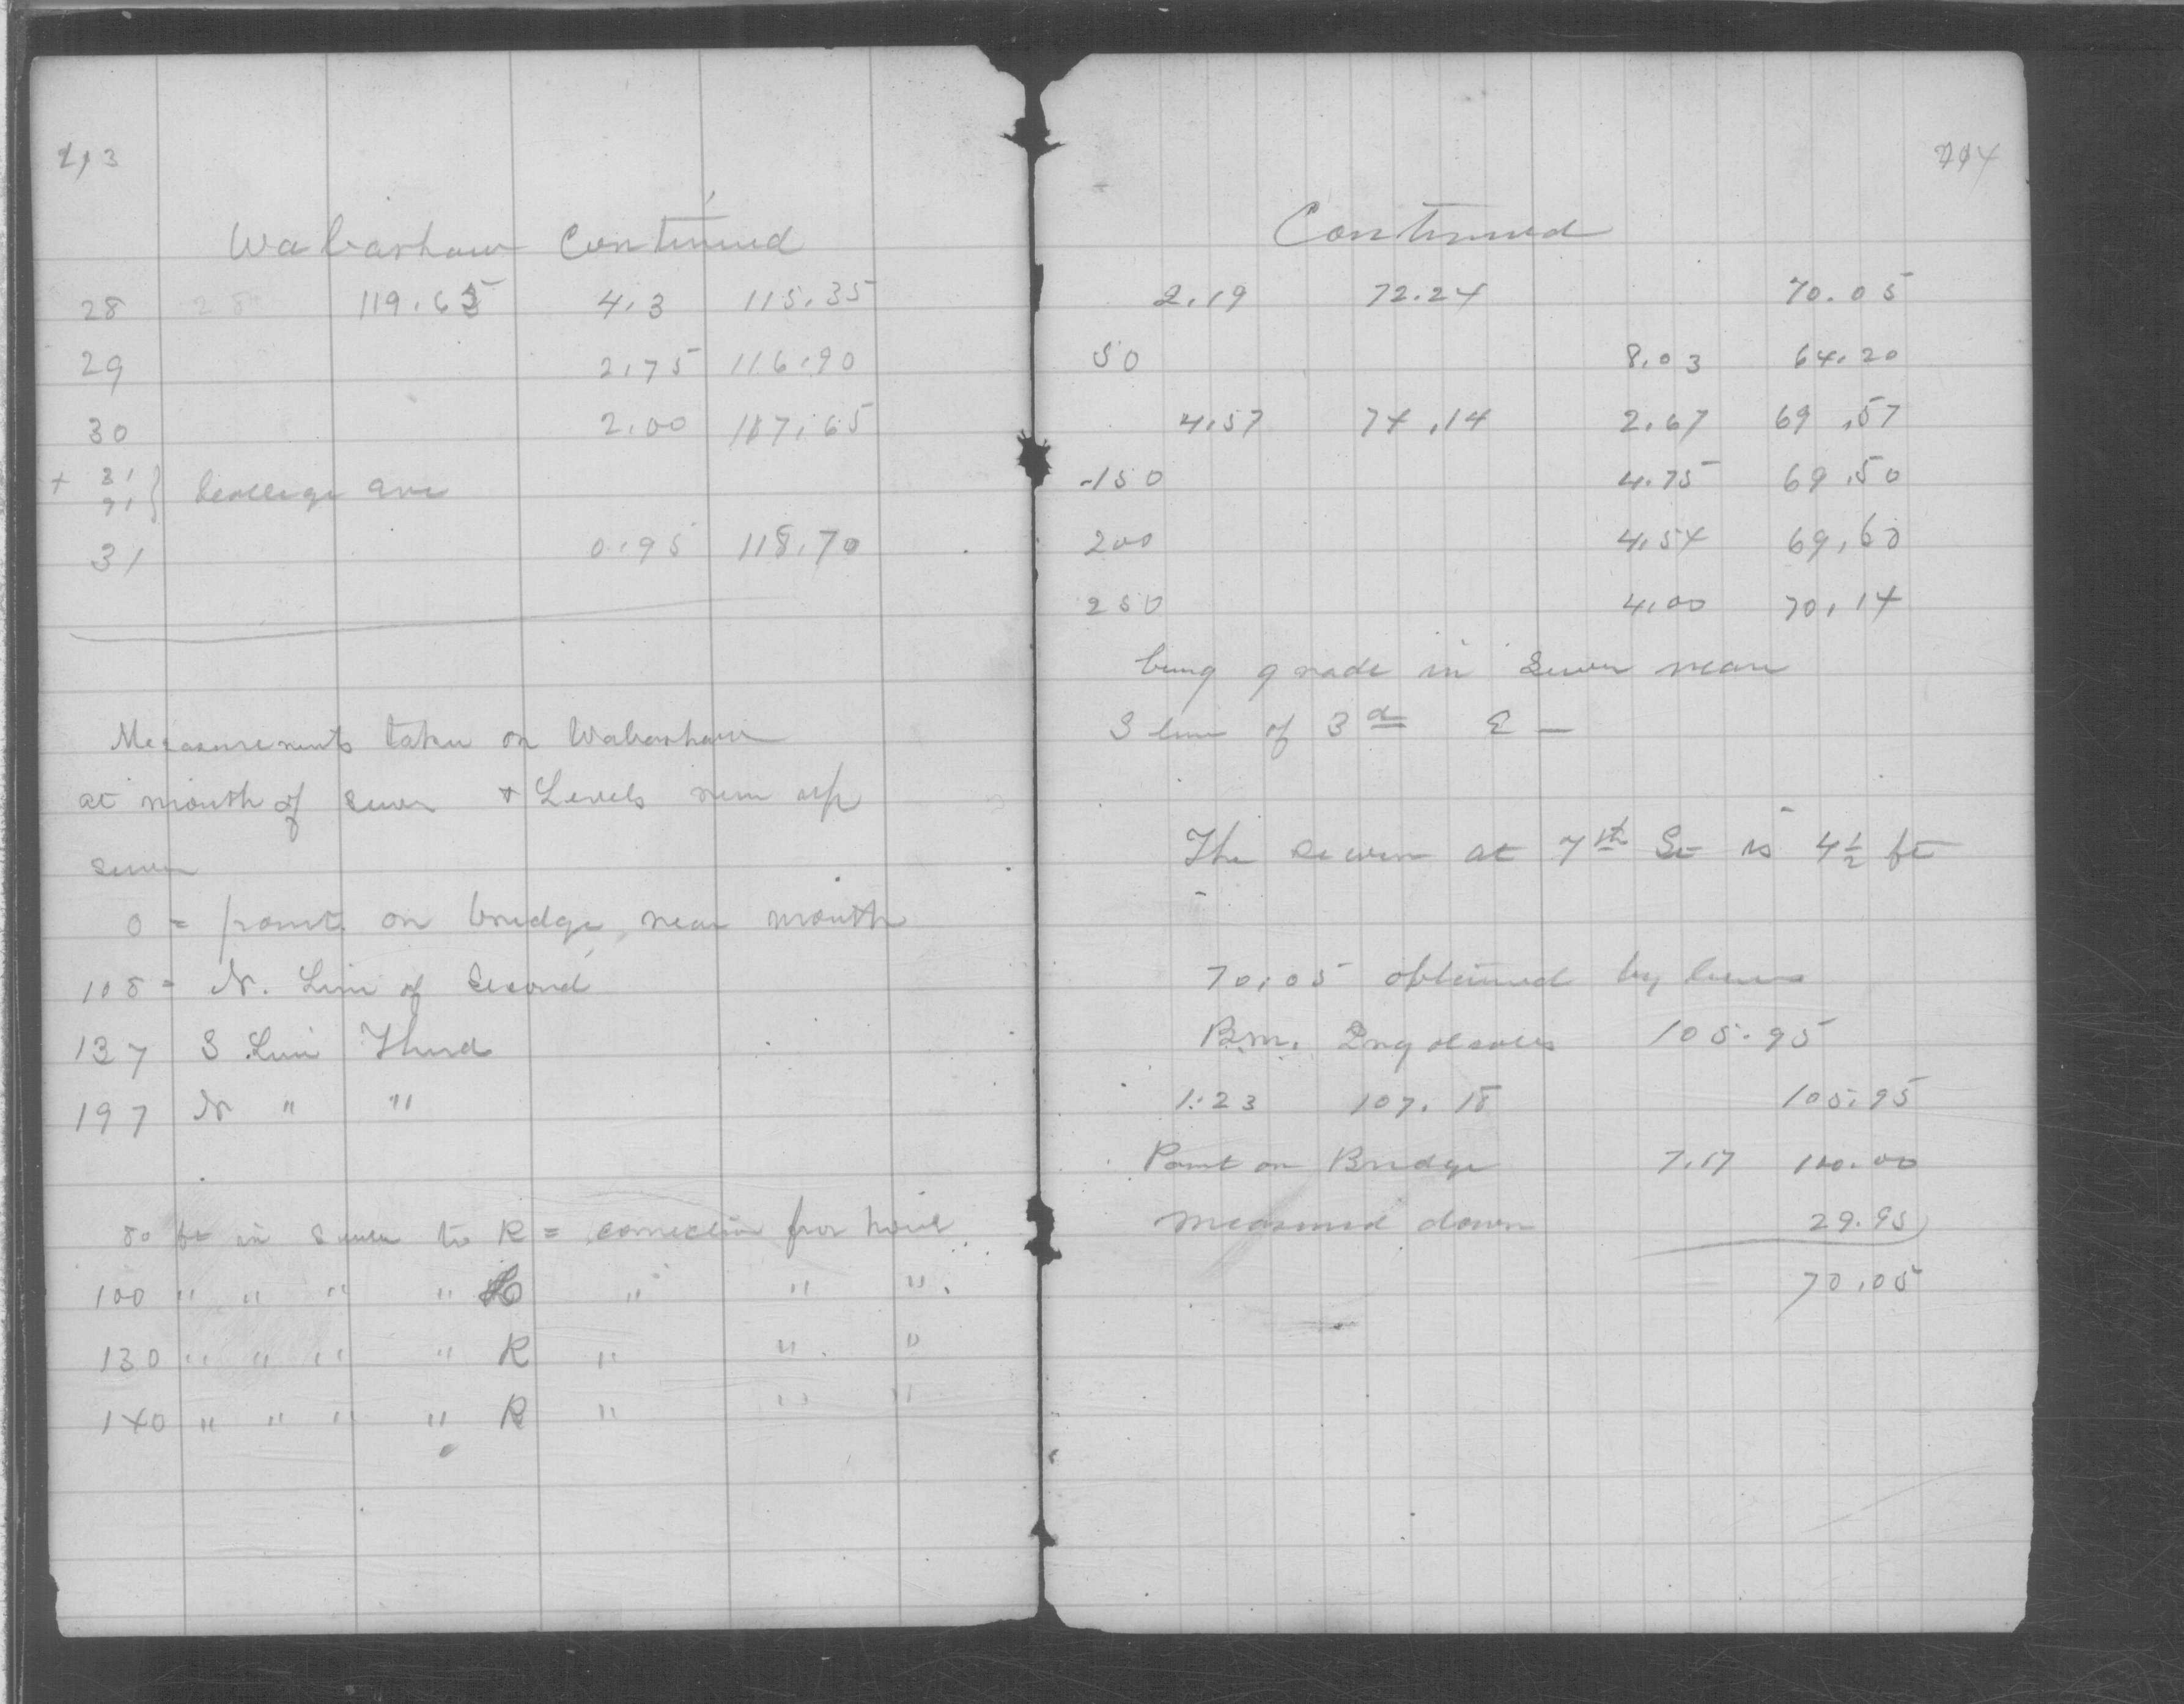 213
Wabashaw Continued
28 28 119.65 4.3 115.35
29 2.75 116.90
30 2.00 117.65
+ 31
91 } College ave
31 0.95 118.70
Measurements taken on Wabashaw
at mouth of sewer & Levels run up
sewer
0 = point on bridge near mouth
108 = N. Line of Second
137 S Line Third
197 N " "
80 ft in Sewer to R = connection for house
100 " " " " " " "
130 " " " " R " " "
140 " " " " R " " "
214
Continued
2.19 72.24 70.05
50 8.03 64.20
4.57 74.14 2.67 69.57
150 4.75 69.50
200 4.54 69.60
250 4.00 70.14
being grade in Sewer near
S line of 3d
The sewer at 7th St is 4 1/2 ft
70.05 obtained by levels
B.M. 105.95
1.23 107.18 105.95
Point on Bridge 7.17 100.00
Measured down 29.95
70.05